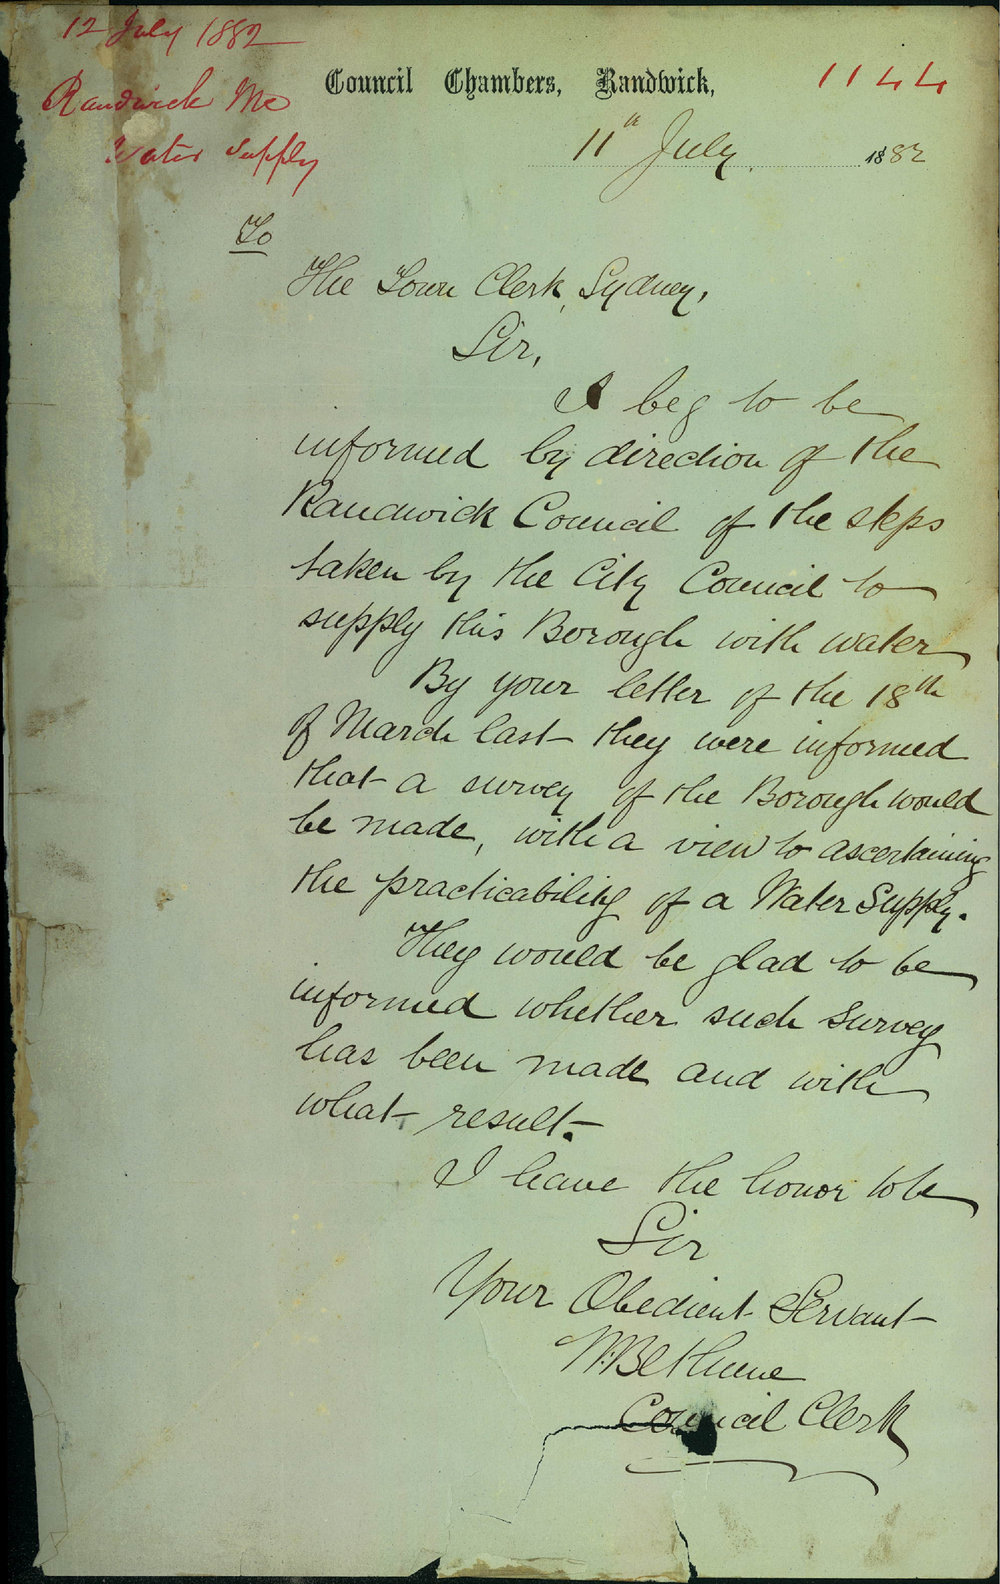 12 July 1882
Randwick Mc
Water Supply
1144
Council Chambers, Randwick,
11th July 1882
To
The Town Clerk, Sydney,
Sir,
I beg to be
informed by direction of the
Randwick Council of the steps
taken by the City Council to
supply this Borough with water
By your letter of the 18th
of March last they were informed
that a survey of the Borough would
be made, with a view to ascertaining
the practicability of a Water Supply.
They would be glad to be
informed whether such survey
has been made and with
what result.
I have the honor to be
Sir
Your Obedient Servant
W. Bethune
Council Clerk